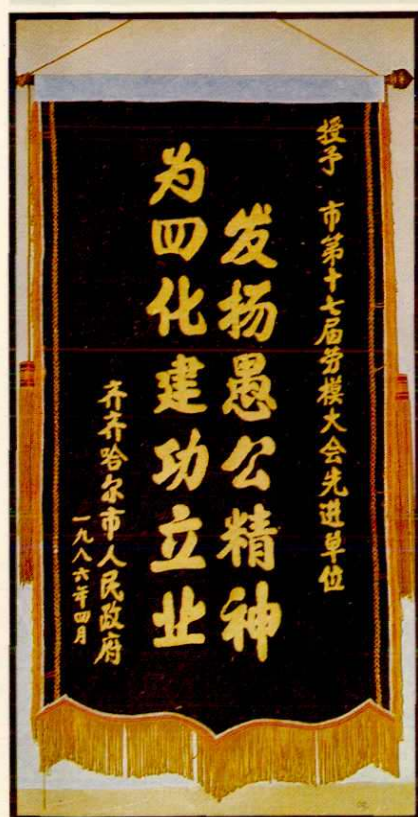 授予 市第十七届劳模大会先进单位
发扬愚公精神
为四化建功立业
齐齐哈尔市人民政府
一九八六年四月